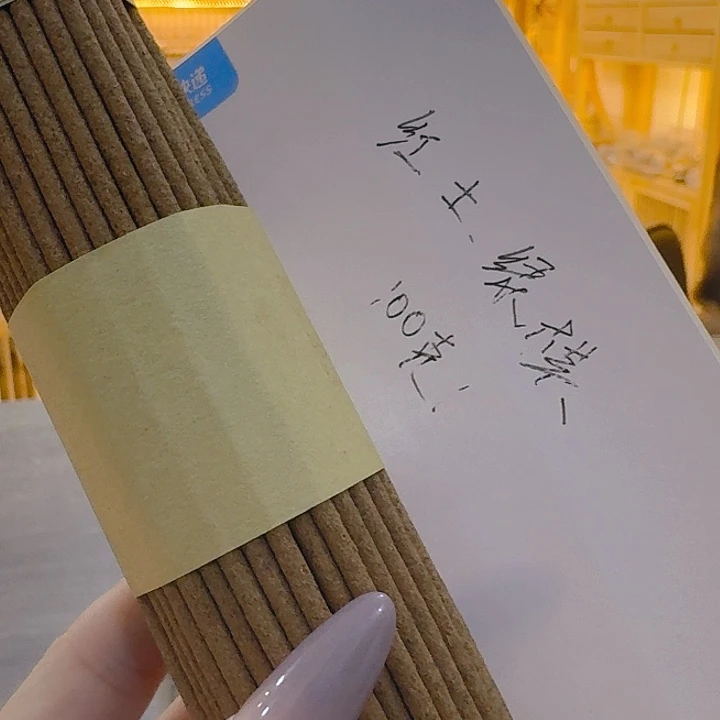 快递
ESS
红土、绿棋
100克